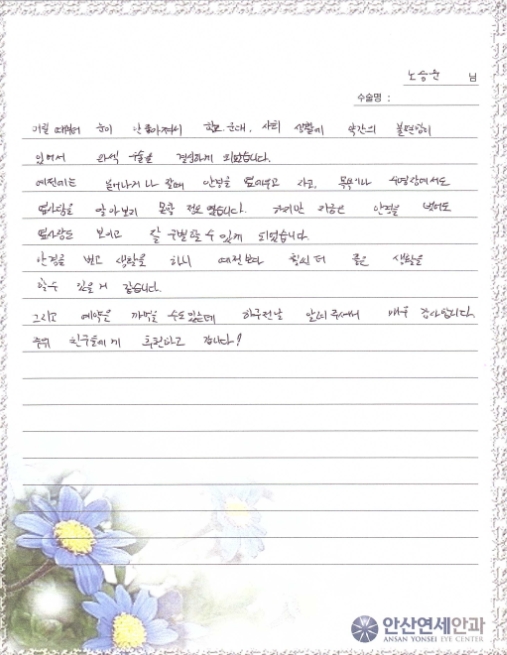 노승윤 님
수술명 :
어릴 때부터 눈이 안 좋아져서 학교, 군대, 사회 생활이 약간의 불편함이
있어서 라식 수술을 결심하게 되었습니다.
예전에는 놀러나 갈때 안경을 쓰고, 목욕이나 수영장에서도
옆사람을 알아보지 못할 정도였습니다. 하지만 지금은 안경을 벗어도
옆사람도 보이고 잘 구별할 수 있게 되었습니다.
안경을 벗고 생활을 하니 예전보다 훨씬 더 좋은 생활을
할수 있을 거 같습니다.
그리고 예약은 까먹을 수도 있는데 하루전날 알려주셔서 매우 감사합니다.
주위 친구들에게 추천하고 갑니다!
안산연세안과
ANSAN YONSEI EYE CENTER